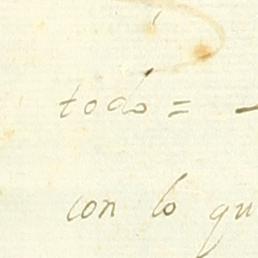 todo = -
con lo qu